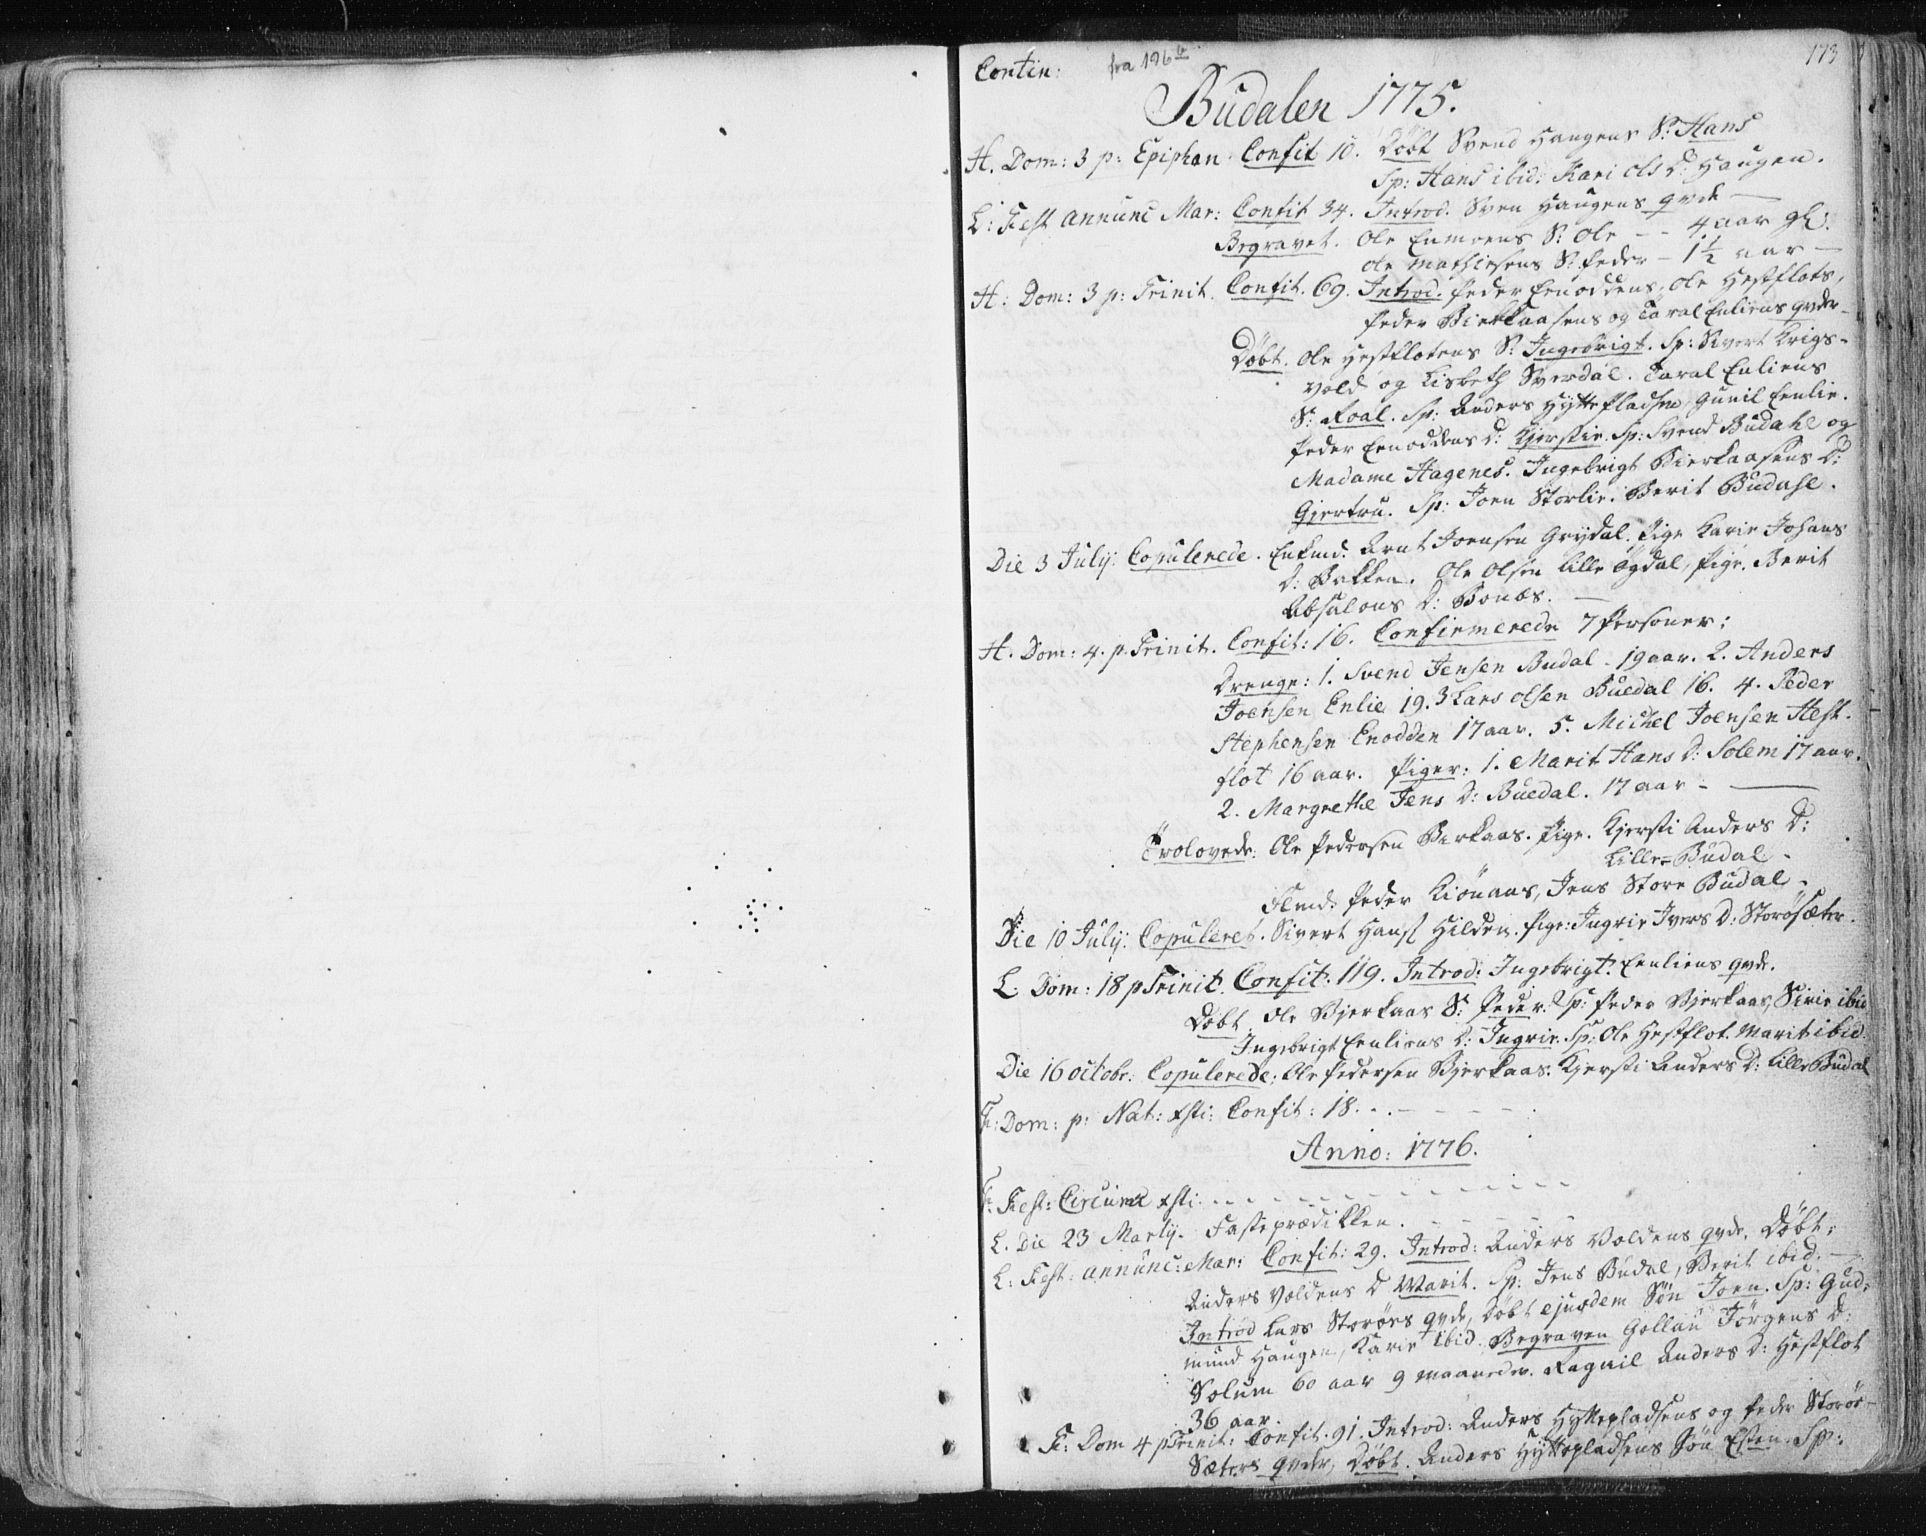 Contin: fra 196 b
173
Budalen 1775.
H. Dom: 3 p: Epiphan. Confit 10. Döbt Svend Haugens S: Hans
Sp: Hans ibid: Kari Ols D: Haugen.
L: Fest Annunc Mar: Confit 34. Introd. Sven Haugens qvde —
Begravet. Ole Enmoens S: Ole - - 4 aar gl:
Ole Mathiesens S: Peder - 1½ aar —
H: Dom: 3 p: Trinit. Confit. 69. Introd. Peder Eenoddens, Ole Hestflots,
Peder Bierkaasens og Taral Enliens qvder -
Döbt. Ole Hestflotens S: Ingebrigt. Sp: Sivert Krigs-
vold og Lisbeth Sverdal. Taral Enliens
S: Roal. Sp: Anders Hyttepladsen, Gunil Eenlie.
Peder Eenoddens D: Kjerstie. Sp: Svend Budahl og
Madame Hagenes. Ingebrigt Bierkaasens D:
Gjertru. Sp: Joen Storlie. Berit Budahl.
Die 3 July: Copulerede. Enkmd. Arnt Joensen Grydal. Pige Karie Johans
D: Bakken. Ole Olsen Lille Ögdal, Pige. Berit
Absalons D: Bonæs. —
H. Dom: 4. p. Trinit. Confit: 16. Confirmerede 7 Personer:
Drenge: 1. Svend Jensen Budal - 19 aar. 2. Anders
Joensen Enlie 19. 3 Lars Olsen Buedal 16. 4. Peder
Stephensen Enodden 17 aar. 5. Michel Joensen Hest-
flot 16 aar. Piger: 1. Marit Hans D: Solem 17 aar.
2. Margrethe Jens D: Buedal. 17 aar - —
Trolovede: Ole Pedersen Birkaas. Pige. Kjersti Anders D:
Lille-Budal -
Flmd. Peder Kiönaas, Jens Store Budal -
Die 10 July: Copuleret. Sivert Hans: Hilden. Pige: Ingrie Ivers D: Storösæter.
L: Dom: 18 p Trinit. Confit. 119. Introd: Ingebrigt Eenliens qvde.
Döbt. Ole Bjerkaas S: Peder. Sp: Peder Bjerkaas, Sirie ibid
Ingebrigt Eenliens D: Ingrie. Sp: Ole Hestflot. Marit ibid.
Die 16 octobr: Copulerede: Ole Pedersen Bjerkaas. Kjersti Anders D: Lille Budal
F: Dom: p: Nat: Xsti: Confit: 18. . . - - - - -
Anno: 1776.
F: Fest: Circumc Xsti: - - - - - - - - -
L. Die 23 Martij. Fasteprædikken. - - - -
L: Fest: Annunc: Mar: Confit: 29. Introd: Anders Voldens qvde. Döbt:
Anders Voldens D Marit. Sp: Jens Budal, Berit ibid: —
Introd Lars Storöes qvde, Döbt ejusdem Sön Joen. Sp: Gud-
mund Haugen, Karie ibid. Begraven Gollau Jörgens D:
Solum 60 aar 9 maaneder. Ragnil Anders D: Hestflot
36 aar.
F: Dom 4 p Trinit: Confit. 91. Introd: Anders Hyttepladsens og Peder Storös-
Sæters qvder, Döbt. Anders Hyttepladsens Sön Esten. Sp: